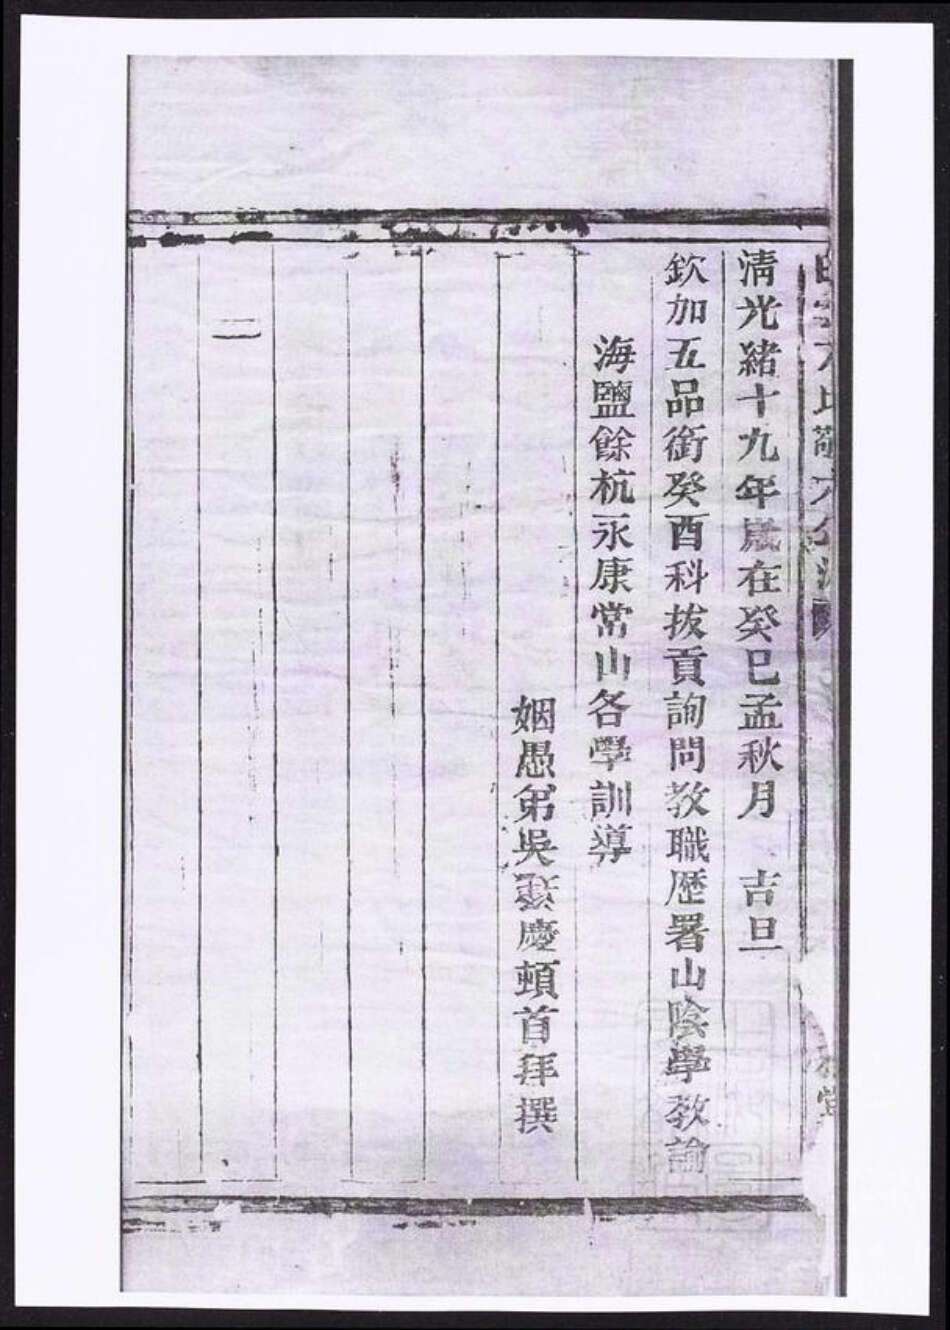 清光緒十九年歲在癸巳孟秋月　吉旦
欽加五品銜癸酉科拔貢詢問教職歷署山陰學教諭
海鹽餘杭永康常山各學訓導
姻愚弟吳慶頓首拜撰
二
堂